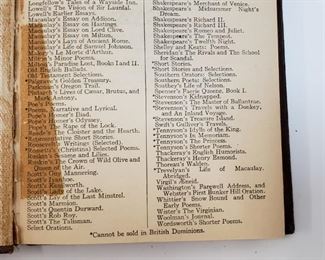 Longfellow's Tales of a Wayside Inn.
Lowell's The Vision of Sir Launfal.
Lowell's Earlier Essays.
Macaulay's Essay on Addison.
Macaulay's Essay on Hastings
Macaulay's Essay on Lord Clive.
Macaulay's Essay on Milton.
Macaulay's Lays of Ancient Rome.
Macaulay's Life of Samuel Johnson.
Malory's Le Morte d'Arthur.
Milton's Minor Poems.
Milton's Paradise Lost, Books I and II.
Old English Ballads.
Old Testament Selections.
Palgrave's Golden Treasury.
Parkman's Oregon Trail.
Plutarch's Lives of Cæsar, Brutus, and
Mark Antony.
Poe's Poems.
Poems, Narrative and Lyrical.
Pope's Homer's Iliad.
Pope's Homer's Odyssey.
Pope's The Rape of the Lock.
Reade's The Cloister and the Hearth.
Representative Short Stories.
Roosevelt's Writings (Selected).
Rossetti's (Christina) Selected Poems.
Ruskin's Sesame and Lilies.
Ruskin's The Crown of Wild Olive and
Queen of the Air.
Scott's Guy Mannering.
Scott's Ivanhoe.
Scott's Kenilworth.
Scott's Lady of the Lake.
Scott's Lay of the Last Minstrel.
Scott's Marmion.
Scott's Quentin Durward.
Scott's Rob Roy.
Scott's The Talisman.
Select Orations.
Shakespeare's Merchant of Venice.
Shakespeare's Midsummer Night's
Dream.
Shakespeare's Richard II.
Shakespeare's Richard III.
Shakespeare's Romeo and Juliet.
Shakespeare's The Tempest.
Shakespeare's Twelfth Night.
Shelley and Keats: Poems.
Sheridan's The Rivals and The School
for Scandal.
*Short Stories.
*Short Stories and Selections.
Southern Orators: Selections.
Southern Poets: Selections.
Southey's Life of Nelson.
Spenser's Faerie Queene, Book I.
*Stevenson's Kidnapped.
Stevenson's The Master of Ballantrae.
*Stevenson's Travels with a Donkey,
and An Inland Voyage.
*Stevenson's Treasure Island.
Swift's Gulliver's Travels.
*Tennyson's Idylls of the King.
*Tennyson's In Memoriam.
*Tennyson's The Princess.
*Tennyson's Shorter Poems.
Thackeray's English Humorists.
Thackeray's Henry Esmond.
Thoreau's Walden.
*Trevelyan's Life of Macaulay.
Abridged.
Virgil's Æneid.
Washington's Farewell Address, and
Webster's First Bunker Hill Oration.
Whittier's Snow Bound and Other
Early Poems.
Wister's The Virginian.
Woolman's Journal.
Wordsworth's Shorter Poems.
*Cannot be sold in British Dominions.